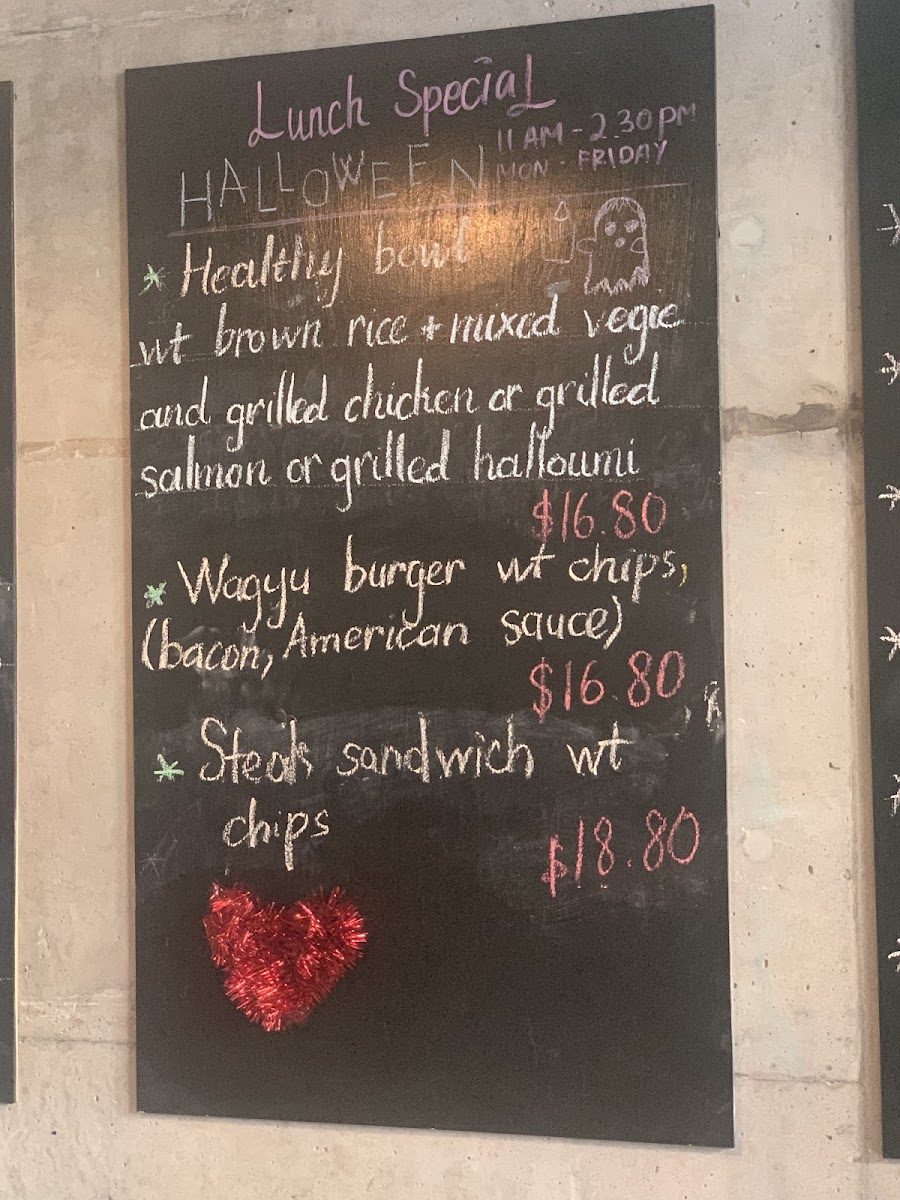 Lunch Special
11 AM - 2.30 PM
HALLOWEEN
MON - FRIDAY
* Healthy bowl
wt brown rice + mixed vegie
and grilled chicken or grilled
salmon or grilled halloumi
$16.80
* Wagyu burger wt chips,
(bacon, American sauce)
$16.80
* Steak sandwich wt
chips
$18.80